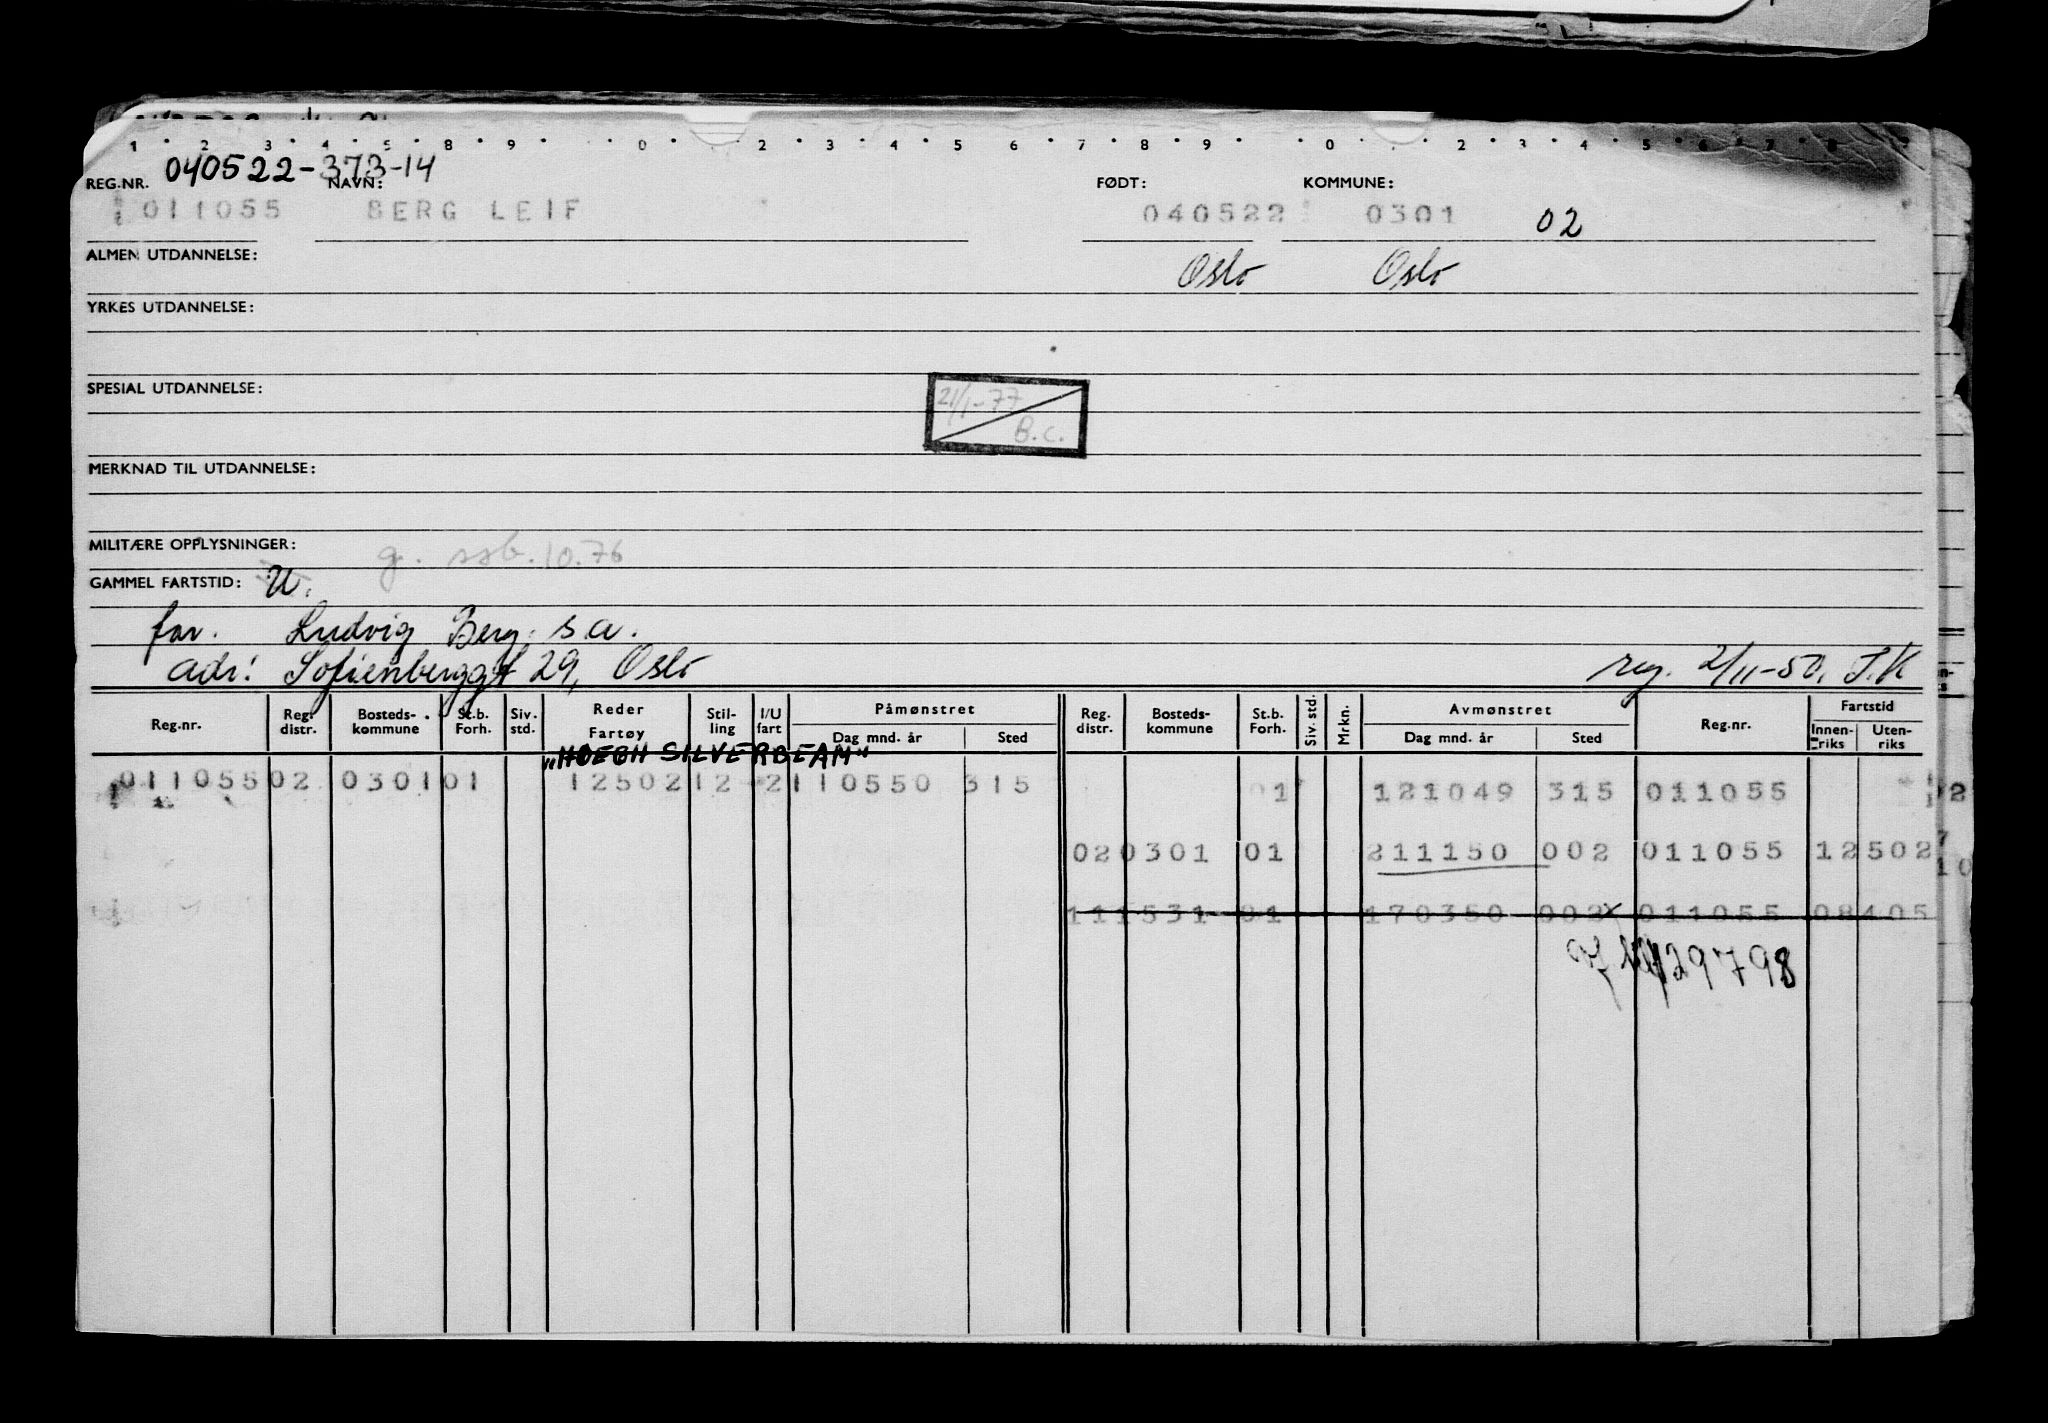 1 2 3 4 5 8 9 0 2 3 4 5 6 7 8 9 0 2 3 4 5 6 7 8 9
040522-373-14
REG.NR. NAVN: FØDT: KOMMUNE:
011055 BERG LEIF 040522 0301 02
ALMEN UTDANNELSE: Oslo Oslo
YRKES UTDANNELSE:
SPESIAL UTDANNELSE:
21/1-77
B.C.
MERKNAD TIL UTDANNELSE:
MILITÆRE OPPLYSNINGER: g. ssb. 10.76
GAMMEL FARTSTID: U.
far. Ludvig Berg. s a.
adr: Sofienberggt 29, Oslo reg. 2/11-50. J.K
Reg.nr. Reg. distr. Bosteds-kommune St.b. Forh. Siv. std. Reder Fartøy Stil-ling I/U fart Påmønstret Dag mnd. år Sted Reg. distr. Bosteds-kommune St.b. Forh. Siv. std. Mrkn. Avmønstret Dag mnd. år Sted Reg.nr. Fartstid Innen-riks Uten-riks
"HOEGH SILVERBEAM"
011055 02 0301 01 12502 12 2 110550 315 01 121049 315 011055
02 0301 01 211150 002 011055 12502
11 1531 01 170350 002 011055 08405
29798